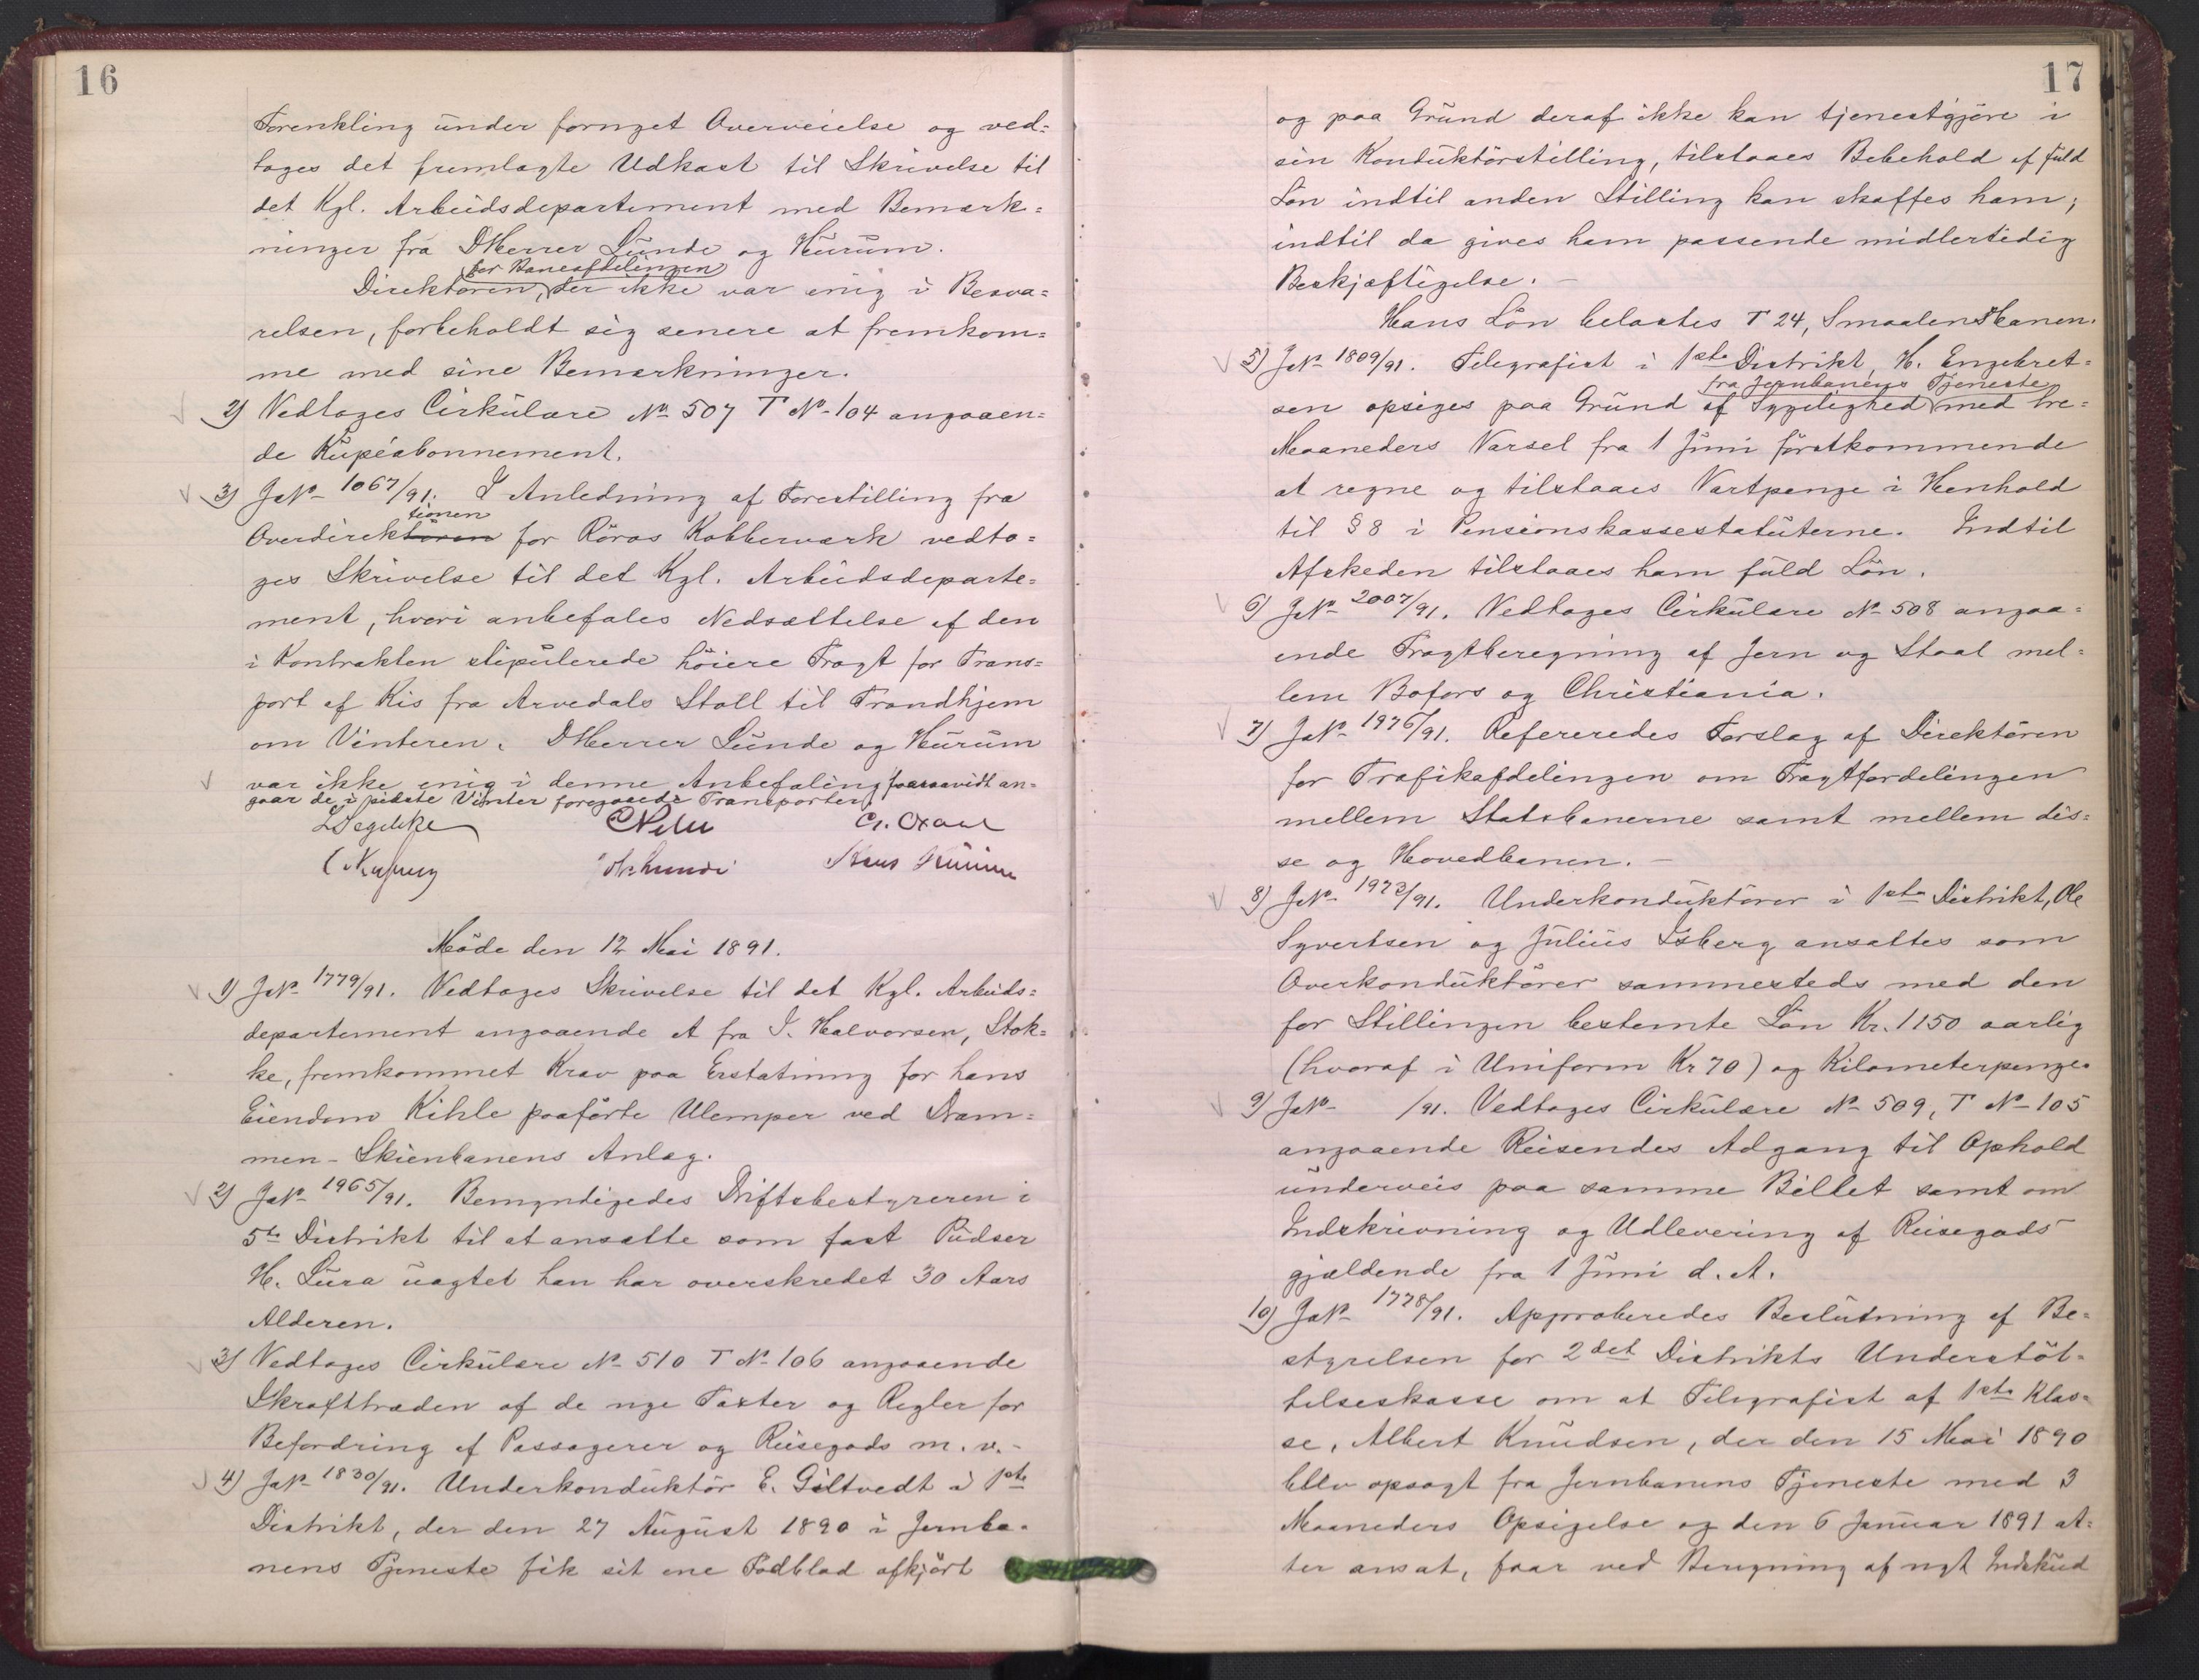 16
Forenkling under fornyet Overveielse og ved=
toges det fremlagte Udkast til Skrivelse til
det Kgl. Arbeidsdepartement med Bemærk=
ninger fra DHerrer Lunde og Hurum.
for Baneafdelingen
Direktøren, der ikke var enig i Besva=
relsen, forbeholdt sig senere at fremkom=
me med sine Bemærkninger.
2) Vedtoges Cirkulære No 507 T No 104 angaaen=
de Kupéabonnement.
3) JNo 1067/91. I Anledning af Forestilling fra
tionen
Overdirektøren for Röros Kobberværk vedto=
ges Skrivelse til det Kgl. Arbeidsdeparte=
ment, hvori anbefales Nedsættelse af den
i Kontrakten stipulerede höiere Fragt for Trans=
port af Kis fra Arvedals Stoll til Trondhjem
om Vinteren. DHerrer Lunde og Hurum
var ikke enig i denne Anbefaling forsaavidt an=
gaar de i sidste Vinter foregaaede Transporter.
Segelcke
Lunde Hans Hurum
Möde den 12 Mai 1891.
1) JNo 1779/91. Vedtoges Skrivelse til det Kgl. Arbeids=
departement angaaende et fra I. Halvorsen, Stok=
ke, fremkommet Krav paa Erstatning for hans
Eiendom Kihle paaførte Ulemper ved Dram=
men-Skienbanens Anlæg.
2) JNo 1965/91. Bemyndigedes Driftsbestyreren i
5te Distrikt til at ansætte som fast Pudser
H. Lura uagtet han har overskredet 30 Aars
Alderen.
3) Vedtoges Cirkulære No 510 T No 106 angaaende
Ikrafttræden af de nye Taxter og Regler for
Befordring af Passagerer og Reisegods m. v.-
4) JNo 1830/91. Underkonduktör E. Giltvedt i 1ste
Distrikt, der den 27 August 1890 i Jernba=
nens Tjeneste fik sit ene Fodblad afkjört
17
og paa Grund deraf ikke kan tjenestgjöre i
sin Konduktörstilling, tilstaaes Bebehold af fuld
Lön indtil anden Stilling kan skaffes ham;
indtil da gives ham passende midlertidig
Beskjæftigelse. –
Hans Lön belastes T 24, Smaalensbanen.
5) JNo 1809/91. Telegrafist i 1ste Distrikt, H. Engebret=
fra Jernbanens Tjeneste
sen opsiges paa Grund af Sygelighed med tre=
Maaneders Varsel fra 1 Juni förstkommende
at regne og tilstaaes Vartpenge i Henhold
til § 8 i Pensionskassestatuterne. Indtil
Afskeden tilstaaes ham fuld Lön.
6) JNo 2007/91. Vedtoges Cirkulære No 508 angaa=
ende Fragtberegning af Jern og Staal mel=
lem Bofors og Christiania.
7) JNo 1976/91. Refereredes Forslag af Direktören
for Trafikafdelingen om Fragtfordelingen
mellem Statsbanerne samt mellem dis=
se og Hovedbanen. –
8) JNo 1973/91. Underkonduktörer i 1ste Distrikt, Ole
Syvertsen og Julius Isberg ansættes som
Overkonduktörer sammesteds med den
for Stillingen bestemte Lön Kr. 1150 aarlig
(hvoraf i Uniform Kr 70) og Kilometerpenge.
9) JNo /91. Vedtoges Cirkulære No 509, T No 105
angaaende Reisendes Adgang til Ophold
underveis paa samme Billet samt om
Indskrivning og Udlevering af Reisegods
gjældende fra 1 Juni d. A.
10) JNo 1778/91. Approberedes Beslutning af Be=
styrelsen for 2det Distrikts Understöt=
telseskasse om at Telegrafist af 1ste Klas=
se, Albert Knudsen, der den 15 Mai 1890
blev opsagt fra Jernbanens Tjeneste med 3
Maaneders Opsigelse og den 6 Januar 1891 at=
ter ansat, faar ved Beregning af nyt Indskud